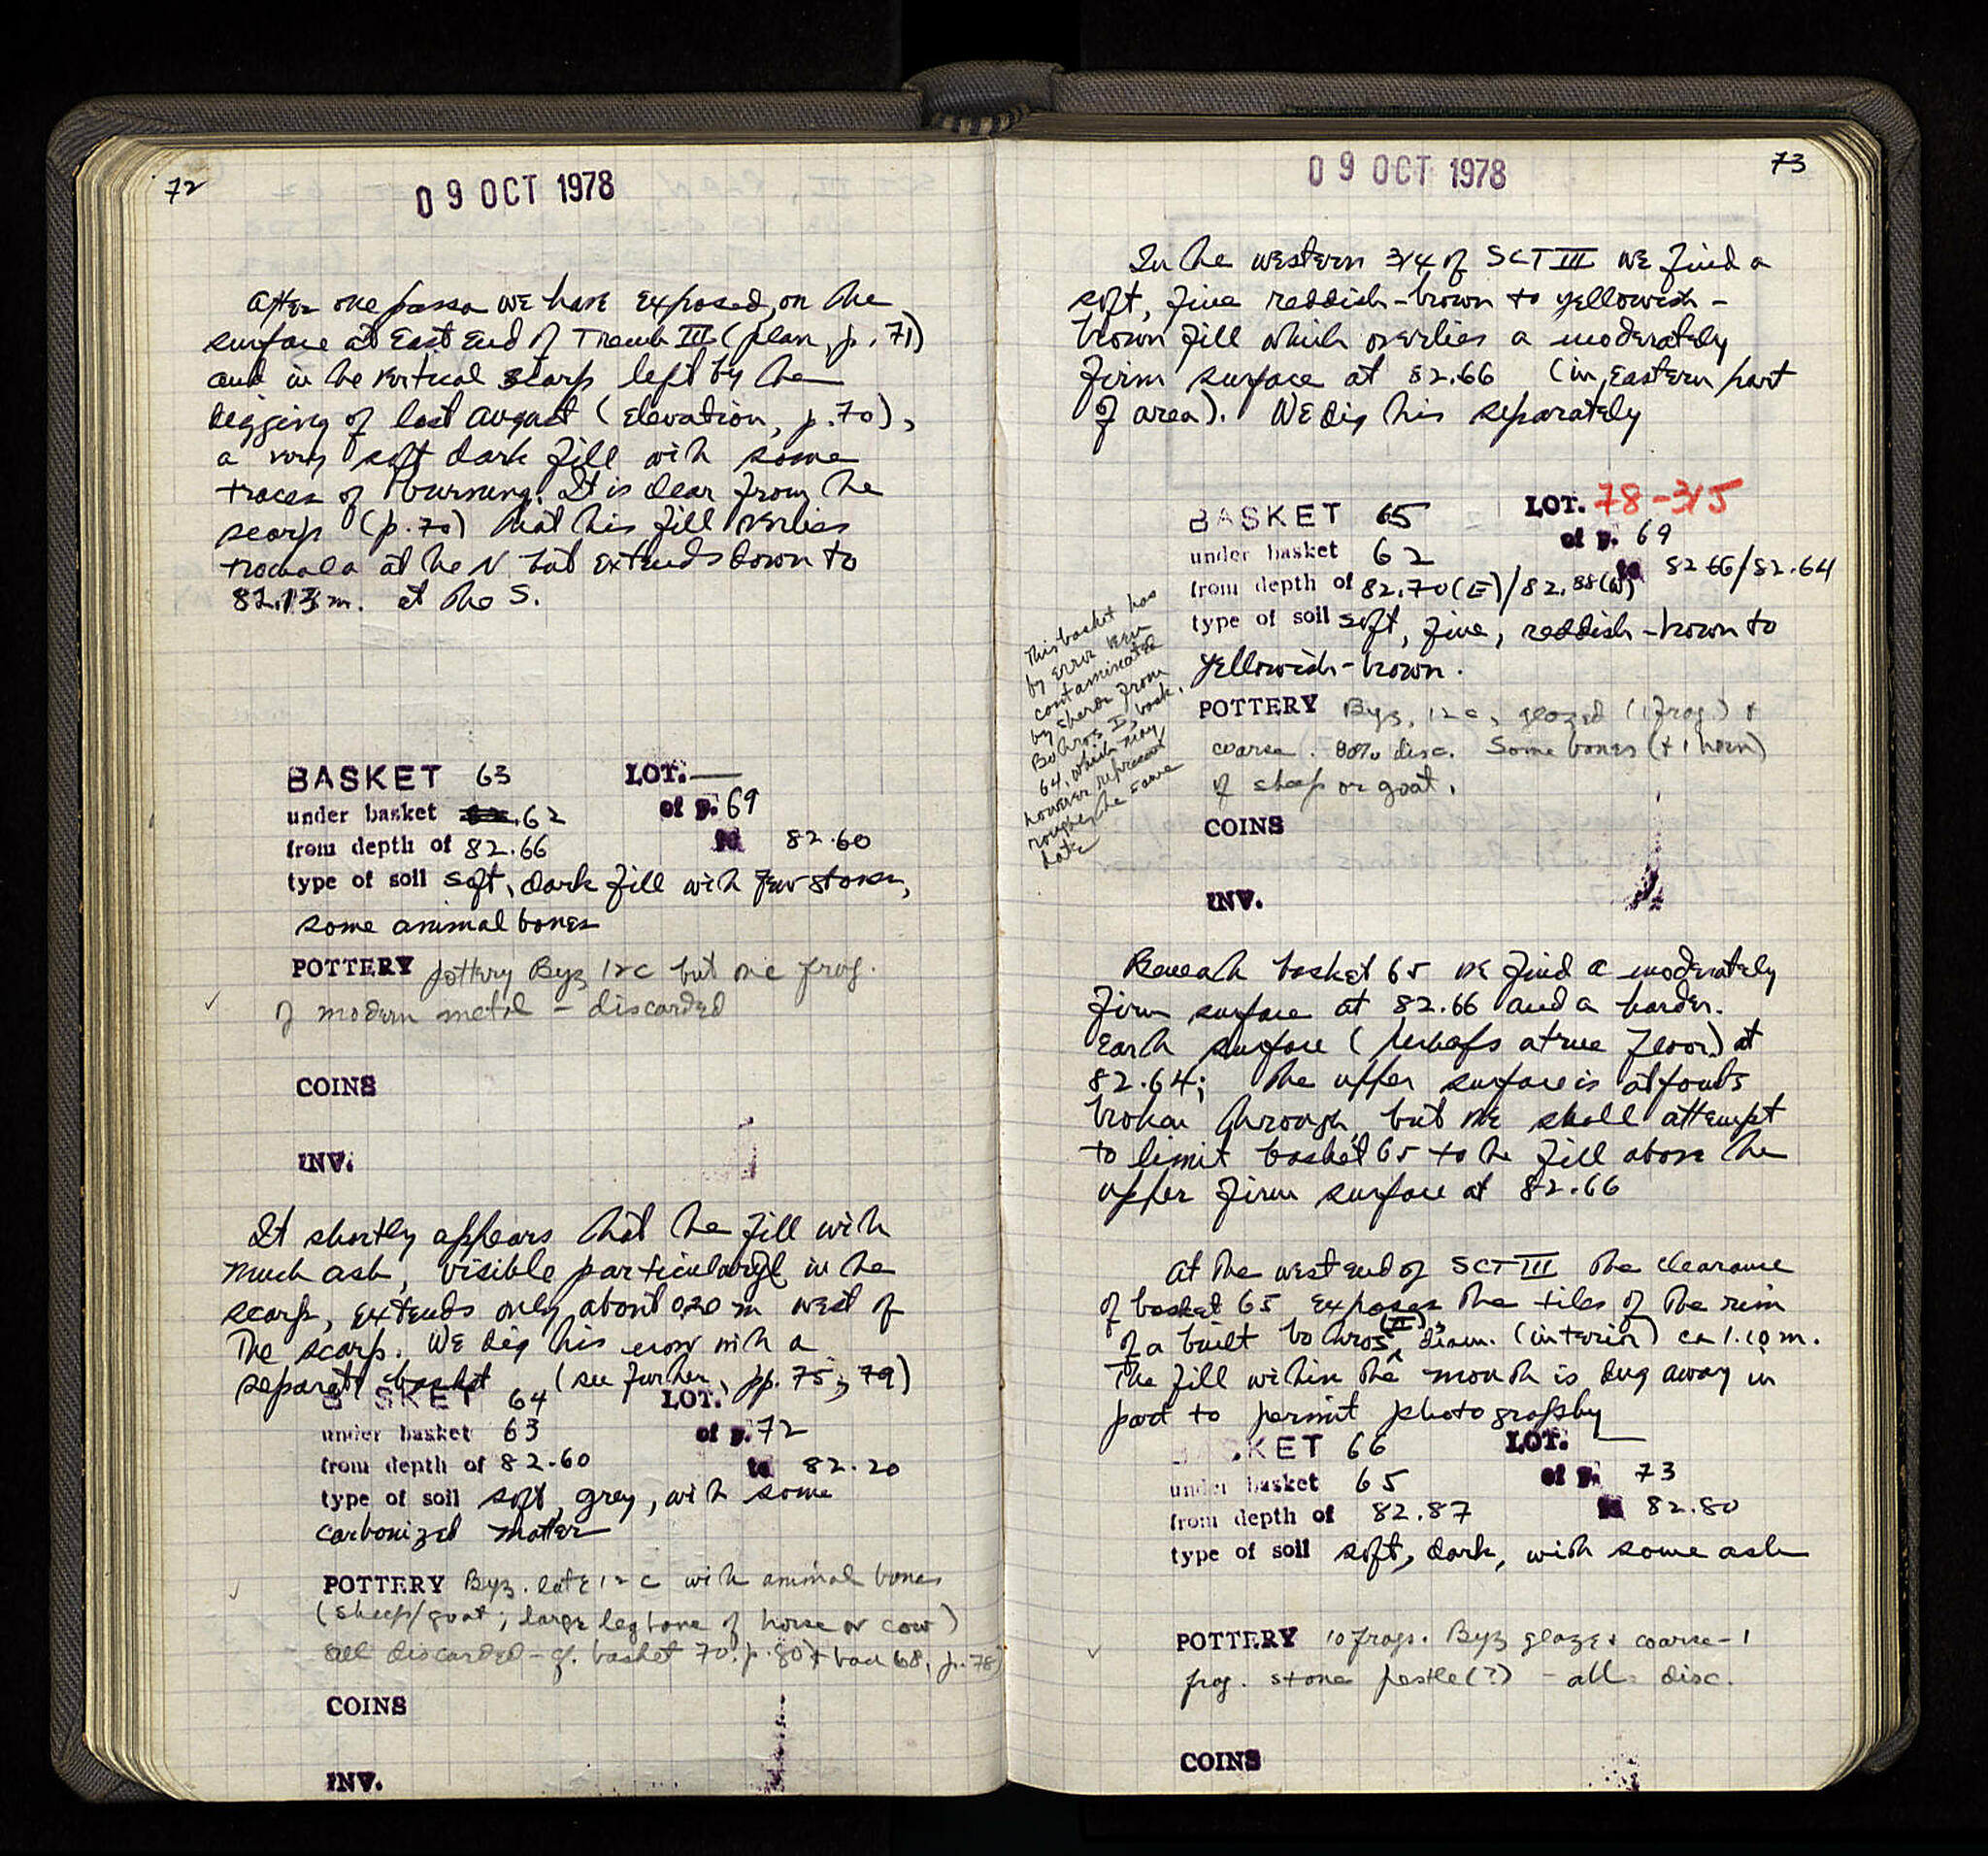 72
09 OCT 1978
After one passa we have exposed, on the
surface at East End of Trench III (plan, p. 71)
and in the vertical scarp left by the
digging of last August (elevation, p. 70),
a very soft dark fill with some
traces of burning. It is clear from the
scarp (p. 70) that this fill overlies
trochala at the N but extends down to
82.13 m. at the S.
BASKET 63 LOT. —
under basket 62 of p. 69
from depth of 82.66 to 82.60
type of soil soft, dark fill with few stones,
some animal bones
POTTERY pottery Byz 12c but one frag.
✓ of modern metal – discarded
COINS
INV.
It shortly appears that the fill with
much ash, visible particularly in the
scarp, extends only about 0.20 m west of
the scarp. We dig this now with a
separate basket (see further, pp. 75, 79)
BASKET 64 LOT.
under basket 63 of p. 72
from depth of 82.60 to 82.20
type of soil soft, grey, with some
carbonized matter
POTTERY Byz. late 12 c with animal bones
(sheep/goat; large leg bone of horse or cow)
all discarded – cf. basket 70, p. 80 + bas 68, p. 78)
COINS
INV.
73
09 OCT 1978
In the western 3/4 of SCT III we find a
soft, fine reddish-brown to yellowish-
brown fill which overlies a moderately
firm surface at 82.66 (in eastern part
of area). We dig this separately
BASKET 65 LOT. 78-315
under basket 62 of p. 69
from depth of 82.70(E)/82.88(W) to 82.66/82.64
type of soil soft, fine, reddish-brown to
yellowish-brown.
This basket has
by error been
contaminated
by sherds from
Bothros I, bask.
64, which may
however represent
roughly the same
date
POTTERY Byz, 12 c, glazed (1 frag.) +
coarse. 80% disc. Some bones (+ 1 horn)
of sheep or goat.
COINS
INV.
Beneath basket 65 we find a moderately
firm surface at 82.66 and a harder
earth surface (perhaps a true floor) at
82.64; the upper surface is at points
broken through, but we shall attempt
to limit basket 65 to the fill above the
upper firm surface at 82.66
At the west end of SCT III the clearance
of basket 65 exposes the tiles of the rim
of a built bothros (II), diam. (interior) ca 1.10 m.
The fill within the mouth is dug away in
part to permit photography
BASKET 66 LOT. —
under basket 65 of p. 73
from depth of 82.87 to 82.80
type of soil soft, dark, with some ash
POTTERY 10 frags. Byz glaze + coarse – 1
✓ frag. stone pestle(?) – all disc.
COINS